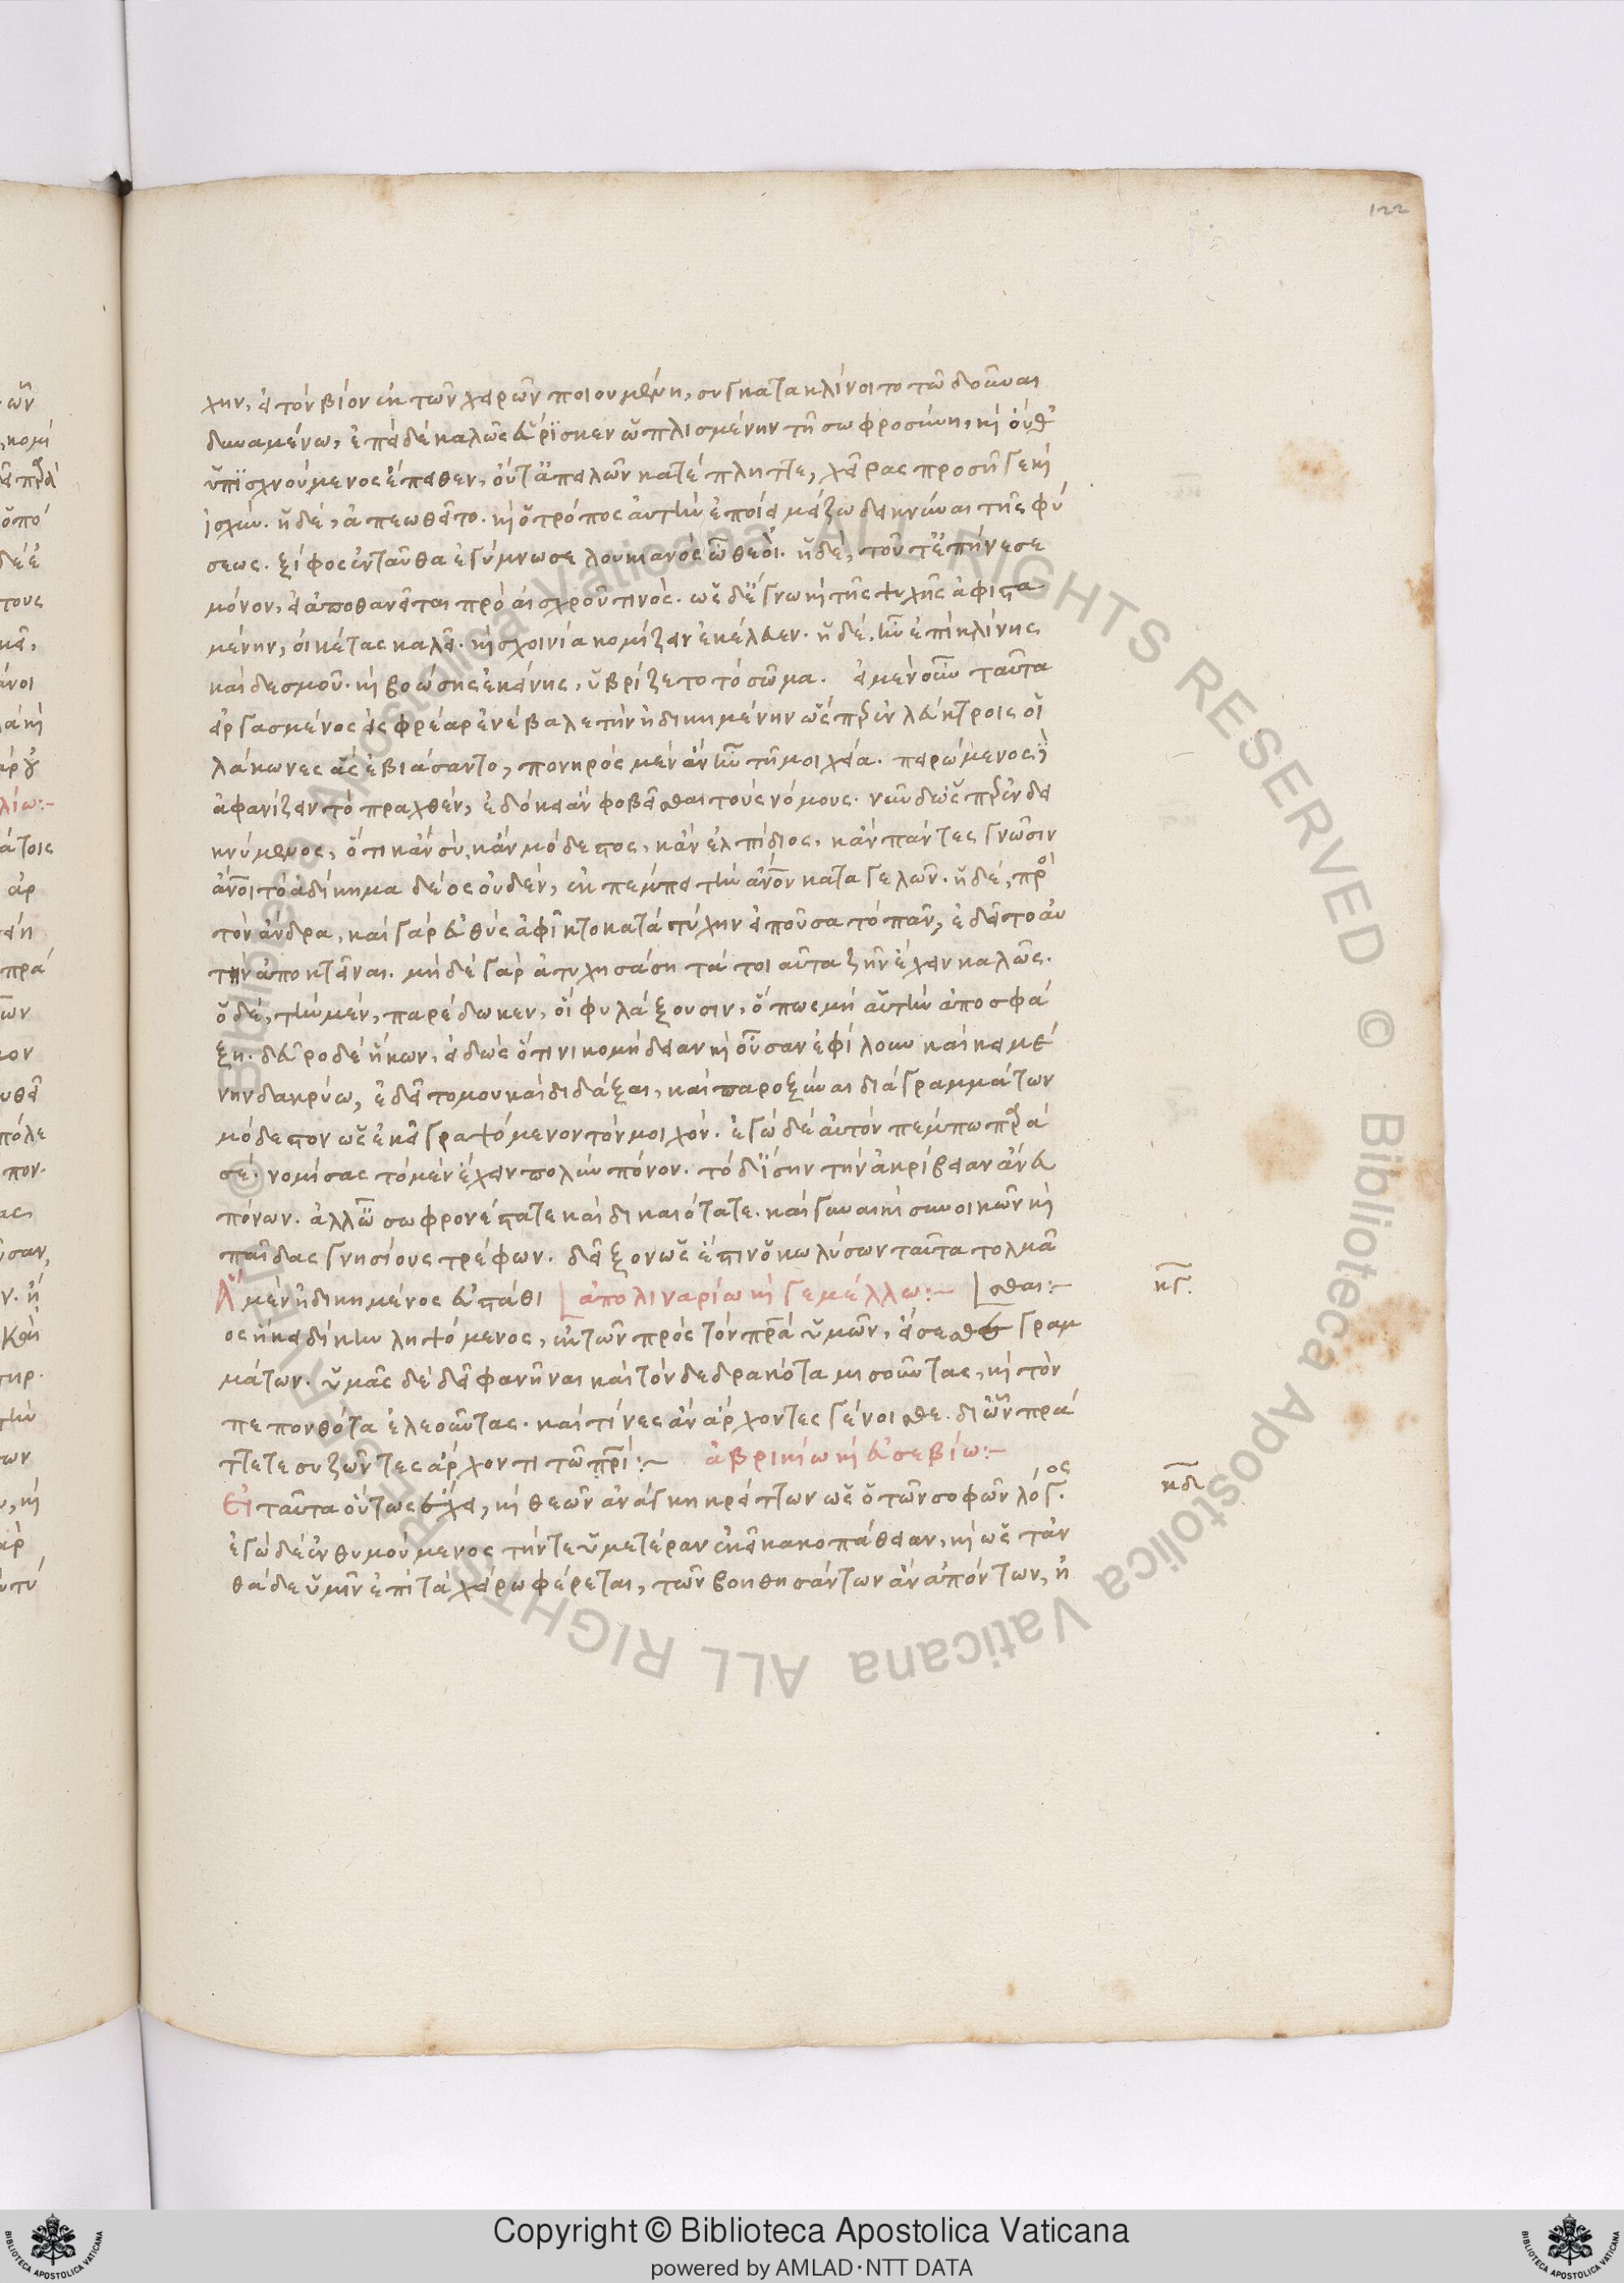 122
χην, εἰ τὸν βίον ἐκ τῶν χειρῶν ποιουμένη, συγκατακλίνοιτο τῶ δοῦναι
δυναμένω, ἐπεὶ δὲ καλῶς εὕρισκεν ὡπλισμένην τῆ σωφροσύνη, κỳ οὔθ'
ὑπισχνούμενος ἔπειθεν, οὔτ' ἀπειλῶν κατέπληττε, χεῖρας προσῆγε κỳ
ἰσχύν. ἡ δὲ, ἀπεωθεῖτο. κỳ ὁ τρόπος αὐτὴν ἐποίει μείζω δεικνύναι τῆς φύ
σεως. ξίφος ἐνταῦθα ἐγύμνωσε λουκιανὸς ὦ θεοί. ἡ δὲ, τοῦτ' ἐπήνεσε
μόνον, εἰ ἀποθανεῖται πρὸ αἰσχροῦ τινός. ὡς δ' ἔγνω κỳ τῆς ψυχῆς ἀφιστα
μένην, οἰκέτας καλεῖ. κỳ σχοινία κομίζειν ἐκέλευεν. ἡ δὲ, ἦν ἐπὶ κλίνης
καὶ δεσμοῦ. κỳ βοώσης ἐκείνης, ὑβρίζετο τὸ σῶμα. εἰ μὲν οὖν ταῦτα
εἰργασμένος εἰς φρέαρ ἐνέβαλε τὴν ἠδικημένην ὥσπερ ἐν λεύκτροις οἱ
λάκωνες ἃς ἐβιάσαντο, πονηρὸς μὲν ἂν ἦν τῆ μοιχεία. πειρώμενος δ'
ἀφανίζειν τὸ πραχθὲν, ἐδόκει ἂν φοβεῖσθαι τοὺς νόμους. νῦν δ' ὥσπερ ἐνδει
κνύμενος, ὅτι κἂν σὺ, κἂν μόδεστος, κἂν ἐλπίδιος, κἂν πάντες γνῶσιν
ἄνοι τὸ ἀδίκημα δέος οὐδὲν, ἐκπέμπει τὴν ἄνον καταγελῶν. ἡ δὲ, πρὸς
τὸν ἄνδρα, καὶ γὰρ εὐθὺς ἀφῖκτο κατὰ τύχην εἰποῦσα τὸ πᾶν, ἐδεῖτο αὐ
τὴν ἀποκτεῖναι. μηδὲ γὰρ ἀτυχησάση τὰ τοιαῦτα ζῆν ἔχειν καλῶς.
ὁ δὲ, τὴν μὲν, παρέδωκεν, οἳ φυλάξουσιν, ὅπως μὴ αὑτὴν ἀποσφά
ξη. δεῦρο δὲ ἥκων, εἰδὼς ὅτι νικομήδειαν κỳ οὖσαν ἐφίλουν καὶ κειμέ
νην δακρύω, ἐδεῖτό μου καὶ διδάξαι, καὶ παροξύναι διὰ γραμμάτων
μόδεστον ὡς ἐκεῖ γραψόμενον τὸν μοιχόν. ἐγὼ δὲ αὐτὸν πέμπω παρὰ
σέ. νομίσας τὸ μὲν ἔχειν πολὺν πόνον. τὸ δ' ἴσην τὴν ἀκρίβειαν ἄνευ
πόνων. ἀλλ' ὦ σωφρονέστατε καὶ δικαιότατε. καὶ γυναικὶ συνοικῶν κỳ
παῖδας γνησίους τρέφων. δεῖξον ὡς ἔστιν ὁ κωλύσων ταῦτα τολμᾶ
σθαι:-
ἀπολιναρίω κỳ γεμέλλω:-
κγ.
Ὁ μὲν ἠδικημένος εὐστάθι
ος ἥκει δίκην ληψόμενος, ἐκ τῶν πρὸς τὸν πρα ὑμῶν, εἴσεσθε γραμ
μάτων. ὑμᾶς δὲ δεῖ φανῆναι καὶ τὸν δεδρακότα μισοῦντας, κỳ τὸν
πεπονθότα ἐλεοῦντας. καὶ τίνες ἂν ἄρχοντες γένοισθε. δι' ὧν πρά
ττετε συζῶντες ἄρχοντι τῶ πρι:- ἀβρικίω κỳ εὐσεβίω:-
κδ
Εἰ ταῦτα οὕτως ἔχει, κỳ θεῶν ἀνάγκη κρεῖττων ὡς ὁ τῶν σοφῶν λόγος.
ἐγὼ δὲ ἐνθυμούμενος τήν τε ὑμετέραν ἐκεῖ κακοπάθειαν, κỳ ὡς τἀν
θάδε ὑμῖν ἐπὶ τὰ χείρω φέρεται, τῶν βοηθησάντων ἂν ἀπόντων, ἢ
Copyright © Biblioteca Apostolica Vaticana
powered by AMLAD·NTT DATA